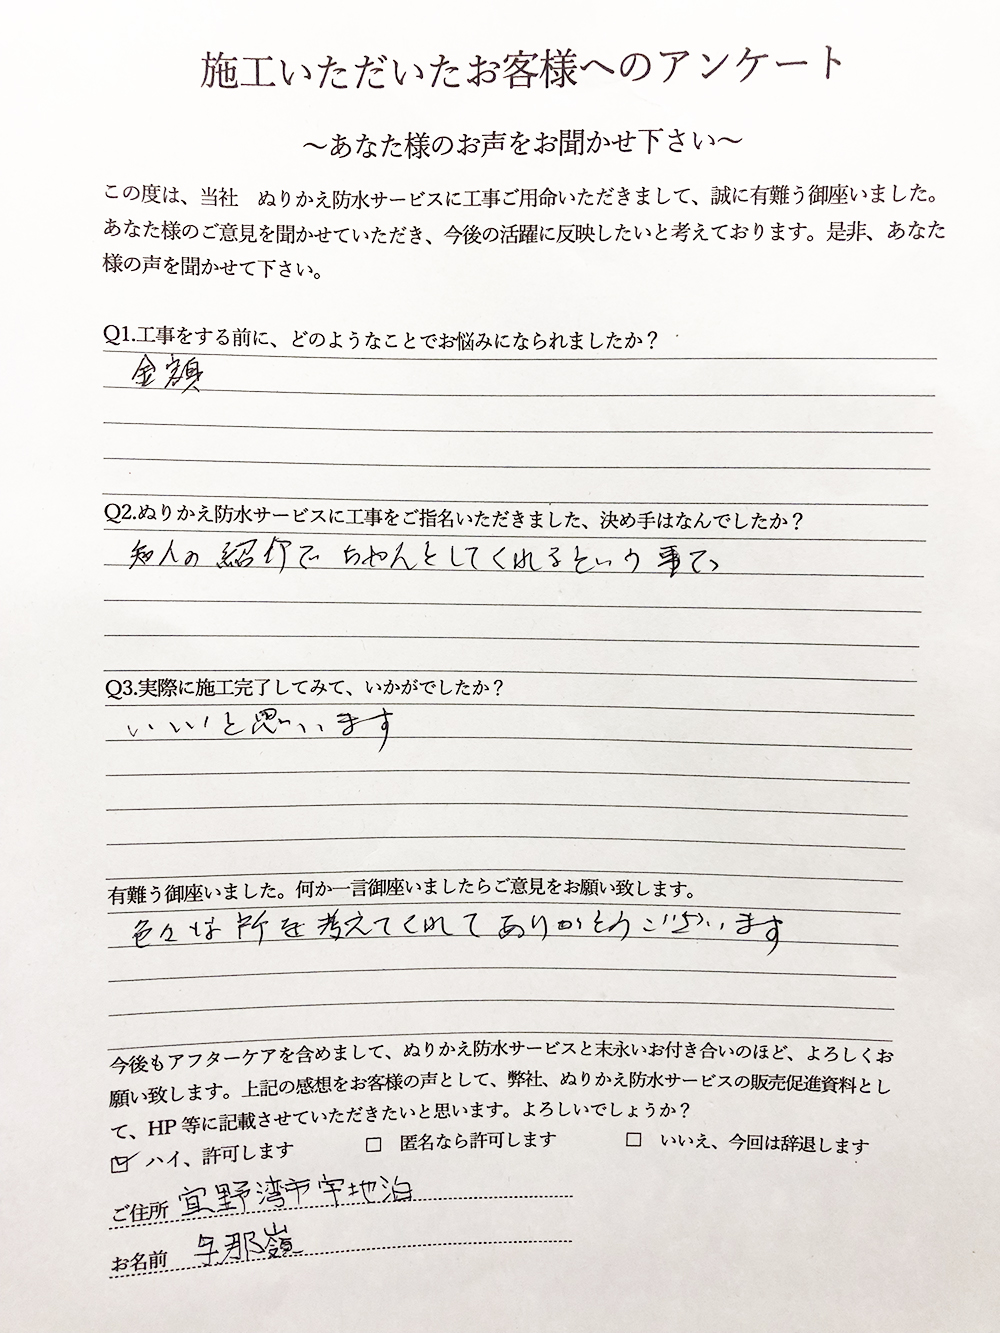 施工いただいたお客様へのアンケート
～あなた様のお声をお聞かせ下さい～
この度は、当社　ぬりかえ防水サービスに工事ご用命いただきまして、誠に有難う御座いました。
あなた様のご意見を聞かせていただき、今後の活躍に反映したいと考えております。是非、あなた
様の声を聞かせて下さい。
Q1.工事をする前に、どのようなことでお悩みになられましたか？
金額
Q2.ぬりかえ防水サービスに工事をご指名いただきました、決め手はなんでしたか？
知人の紹介で ちゃんとしてくれるという事で
Q3.実際に施工完了してみて、いかがでしたか？
いいと思います
有難う御座いました。何か一言御座いましたらご意見をお願い致します。
色々な所を考えてくれてありがとうございます
今後もアフターケアを含めまして、ぬりかえ防水サービスと末永いお付き合いのほど、よろしくお
願い致します。上記の感想をお客様の声として、弊社、ぬりかえ防水サービスの販売促進資料とし
て、HP 等に記載させていただきたいと思います。よろしいでしょうか？
☑ ハイ、許可します　□ 匿名なら許可します　□ いいえ、今回は辞退します
ご住所 宜野湾市宇地泊
お名前 与那嶺